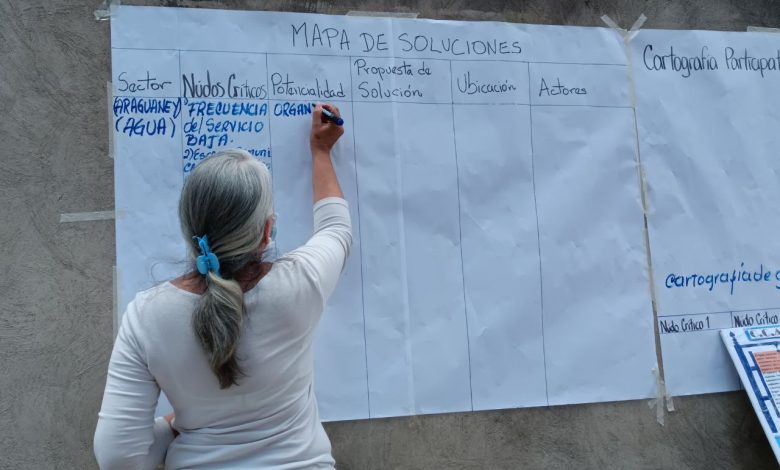 MAPA DE SOLUCIONES
Sector
Nudos Críticos
Potencialidad
Propuesta de
Solución
Ubicación
Actores
(ARAGUANEY)
(AGUA)
FRECUENCIA
del Servicio
BAJA.
ORGAN
Cartografía Participat
Cartografía de
Nudo Crítico 1
Nudo Crítico